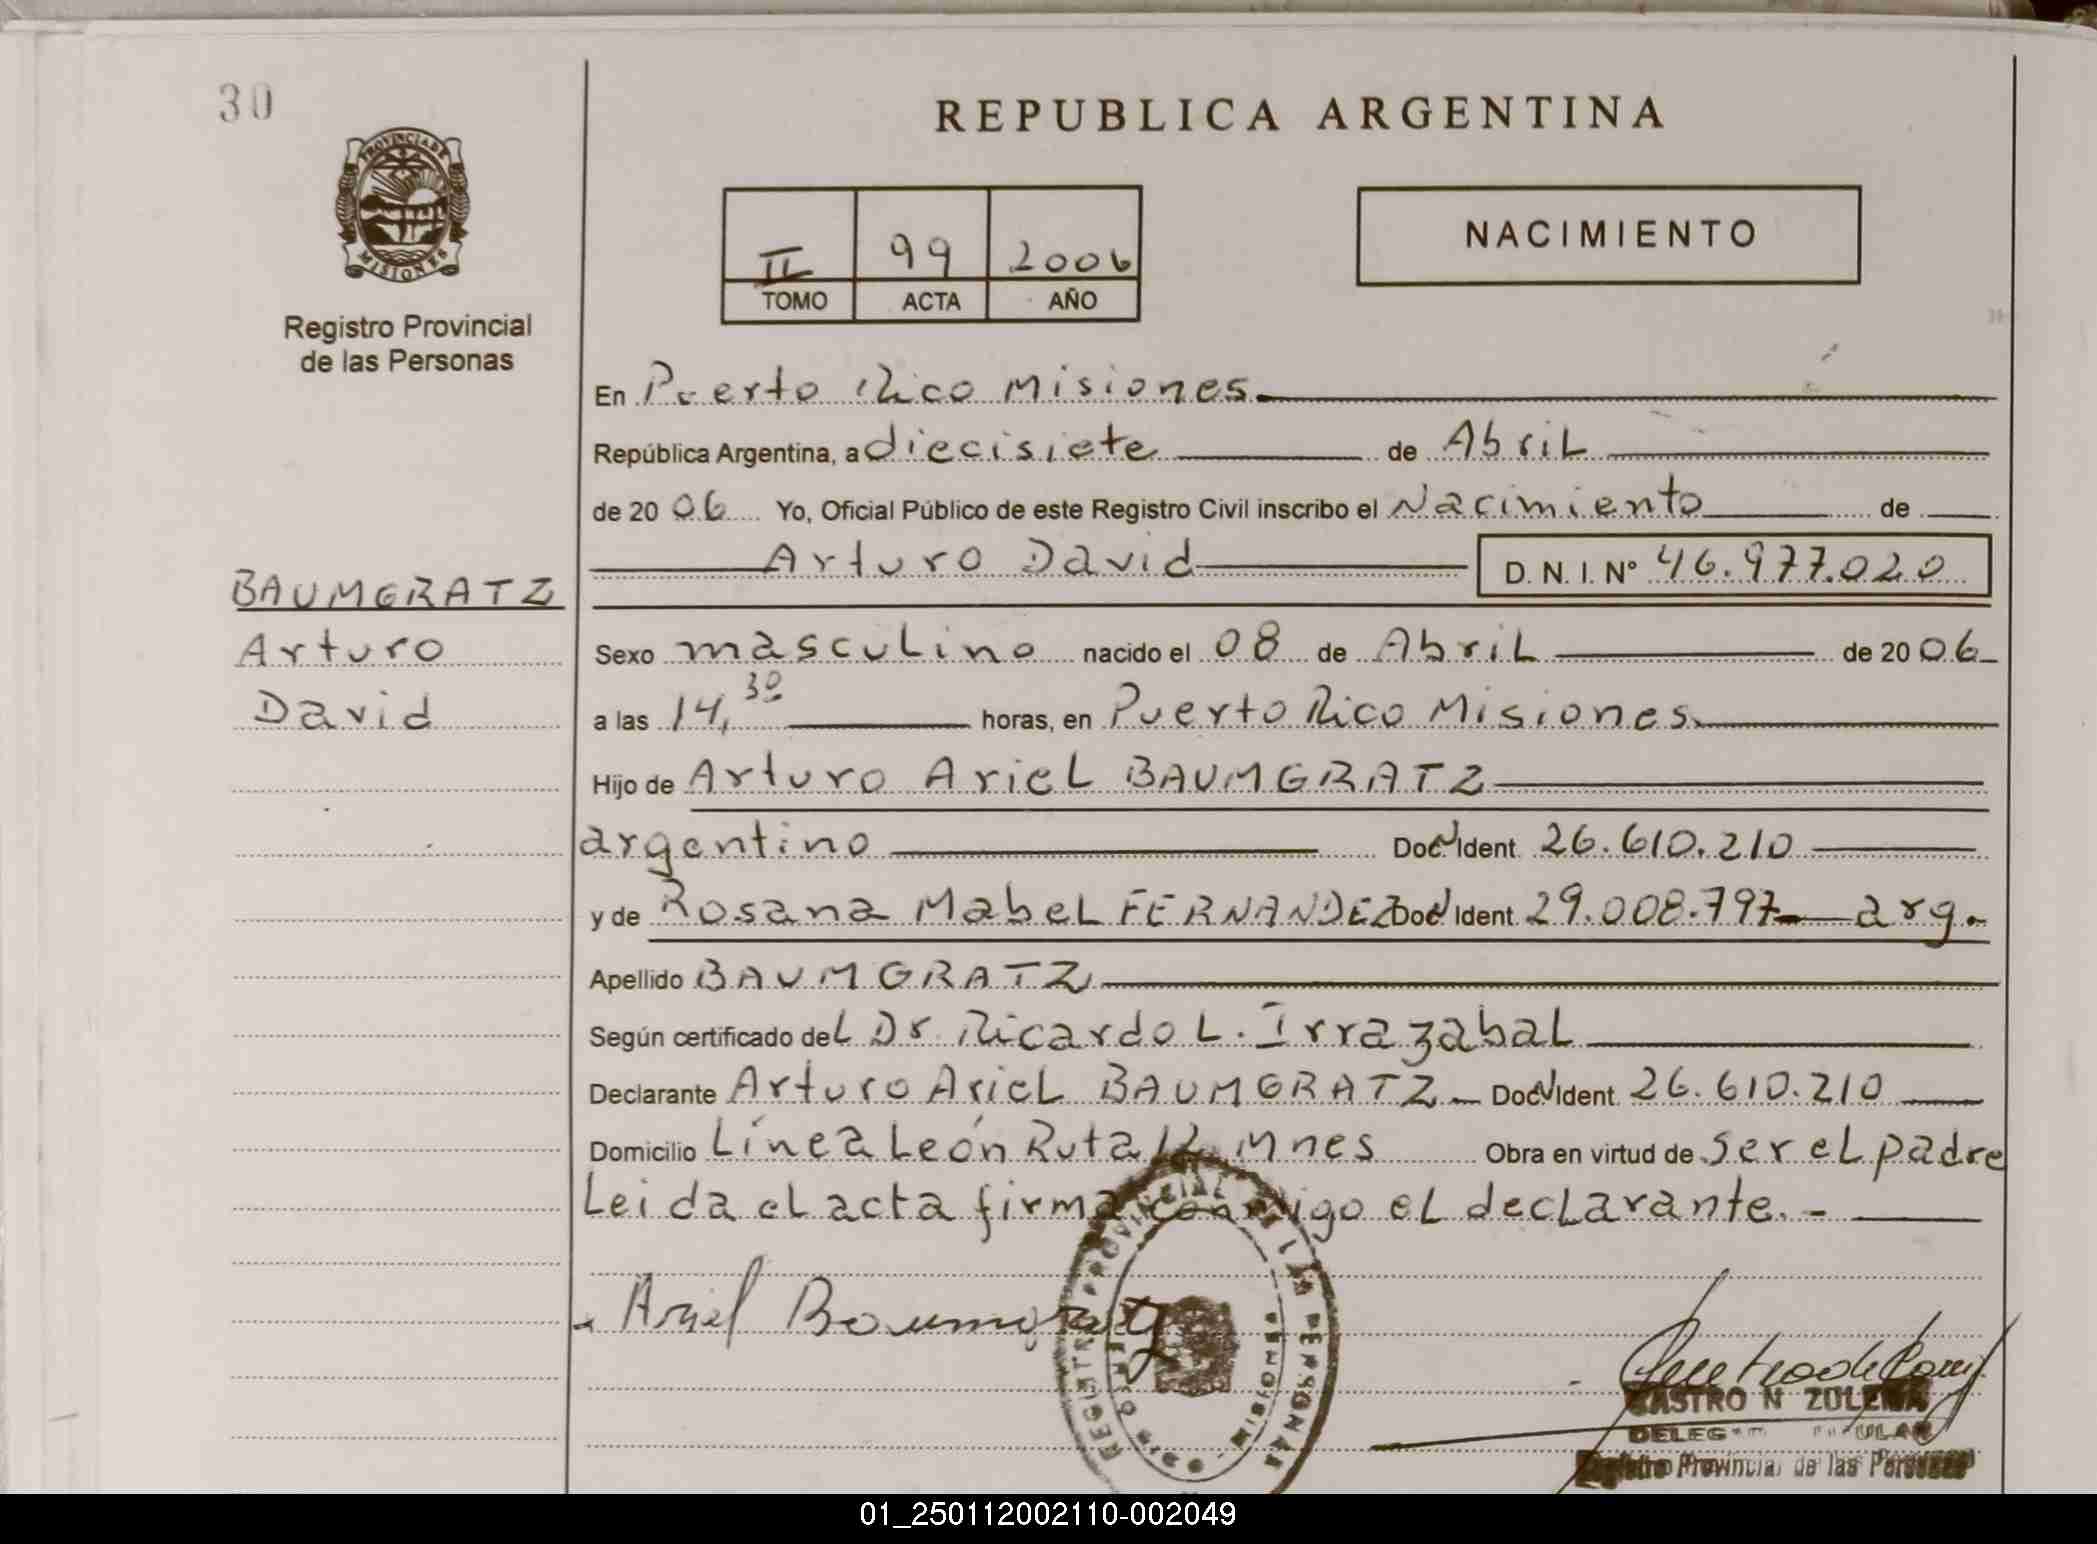 30
REPUBLICA ARGENTINA
PROVINCIA DE
MISIONES
Registro Provincial
de las Personas
II 99 2006
TOMO ACTA AÑO
NACIMIENTO
En Puerto Rico Misiones
República Argentina, a diecisiete de Abril
de 2006 Yo, Oficial Público de este Registro Civil inscribo el Nacimiento de
Arturo David D. N. I. N° 46.977.020
BAUMGRATZ
Arturo
David
Sexo masculino nacido el 08 de Abril de 2006
a las 14,30 horas, en Puerto Rico Misiones
Hijo de Arturo Ariel BAUMGRATZ
argentino Doc Ident. 26.610.210
y de Rosana Mabel FERNANDEZ Doc Ident. 29.008.797 arg.
Apellido BAUMGRATZ
Según certificado del Dr. Ricardo L. Irrazabal
Declarante Arturo Ariel BAUMGRATZ Doc Ident. 26.610.210
Domicilio Línea León Ruta 12 Mnes Obra en virtud de ser el padre
Leida el acta firma conmigo el declarante.-
Ariel Baumgratz
REGISTRO PROVINCIAL DE LAS PERSONAS
MISIONES
CASTRO N ZULEMA
Registro Provincial de las Personas
01_250112002110-002049